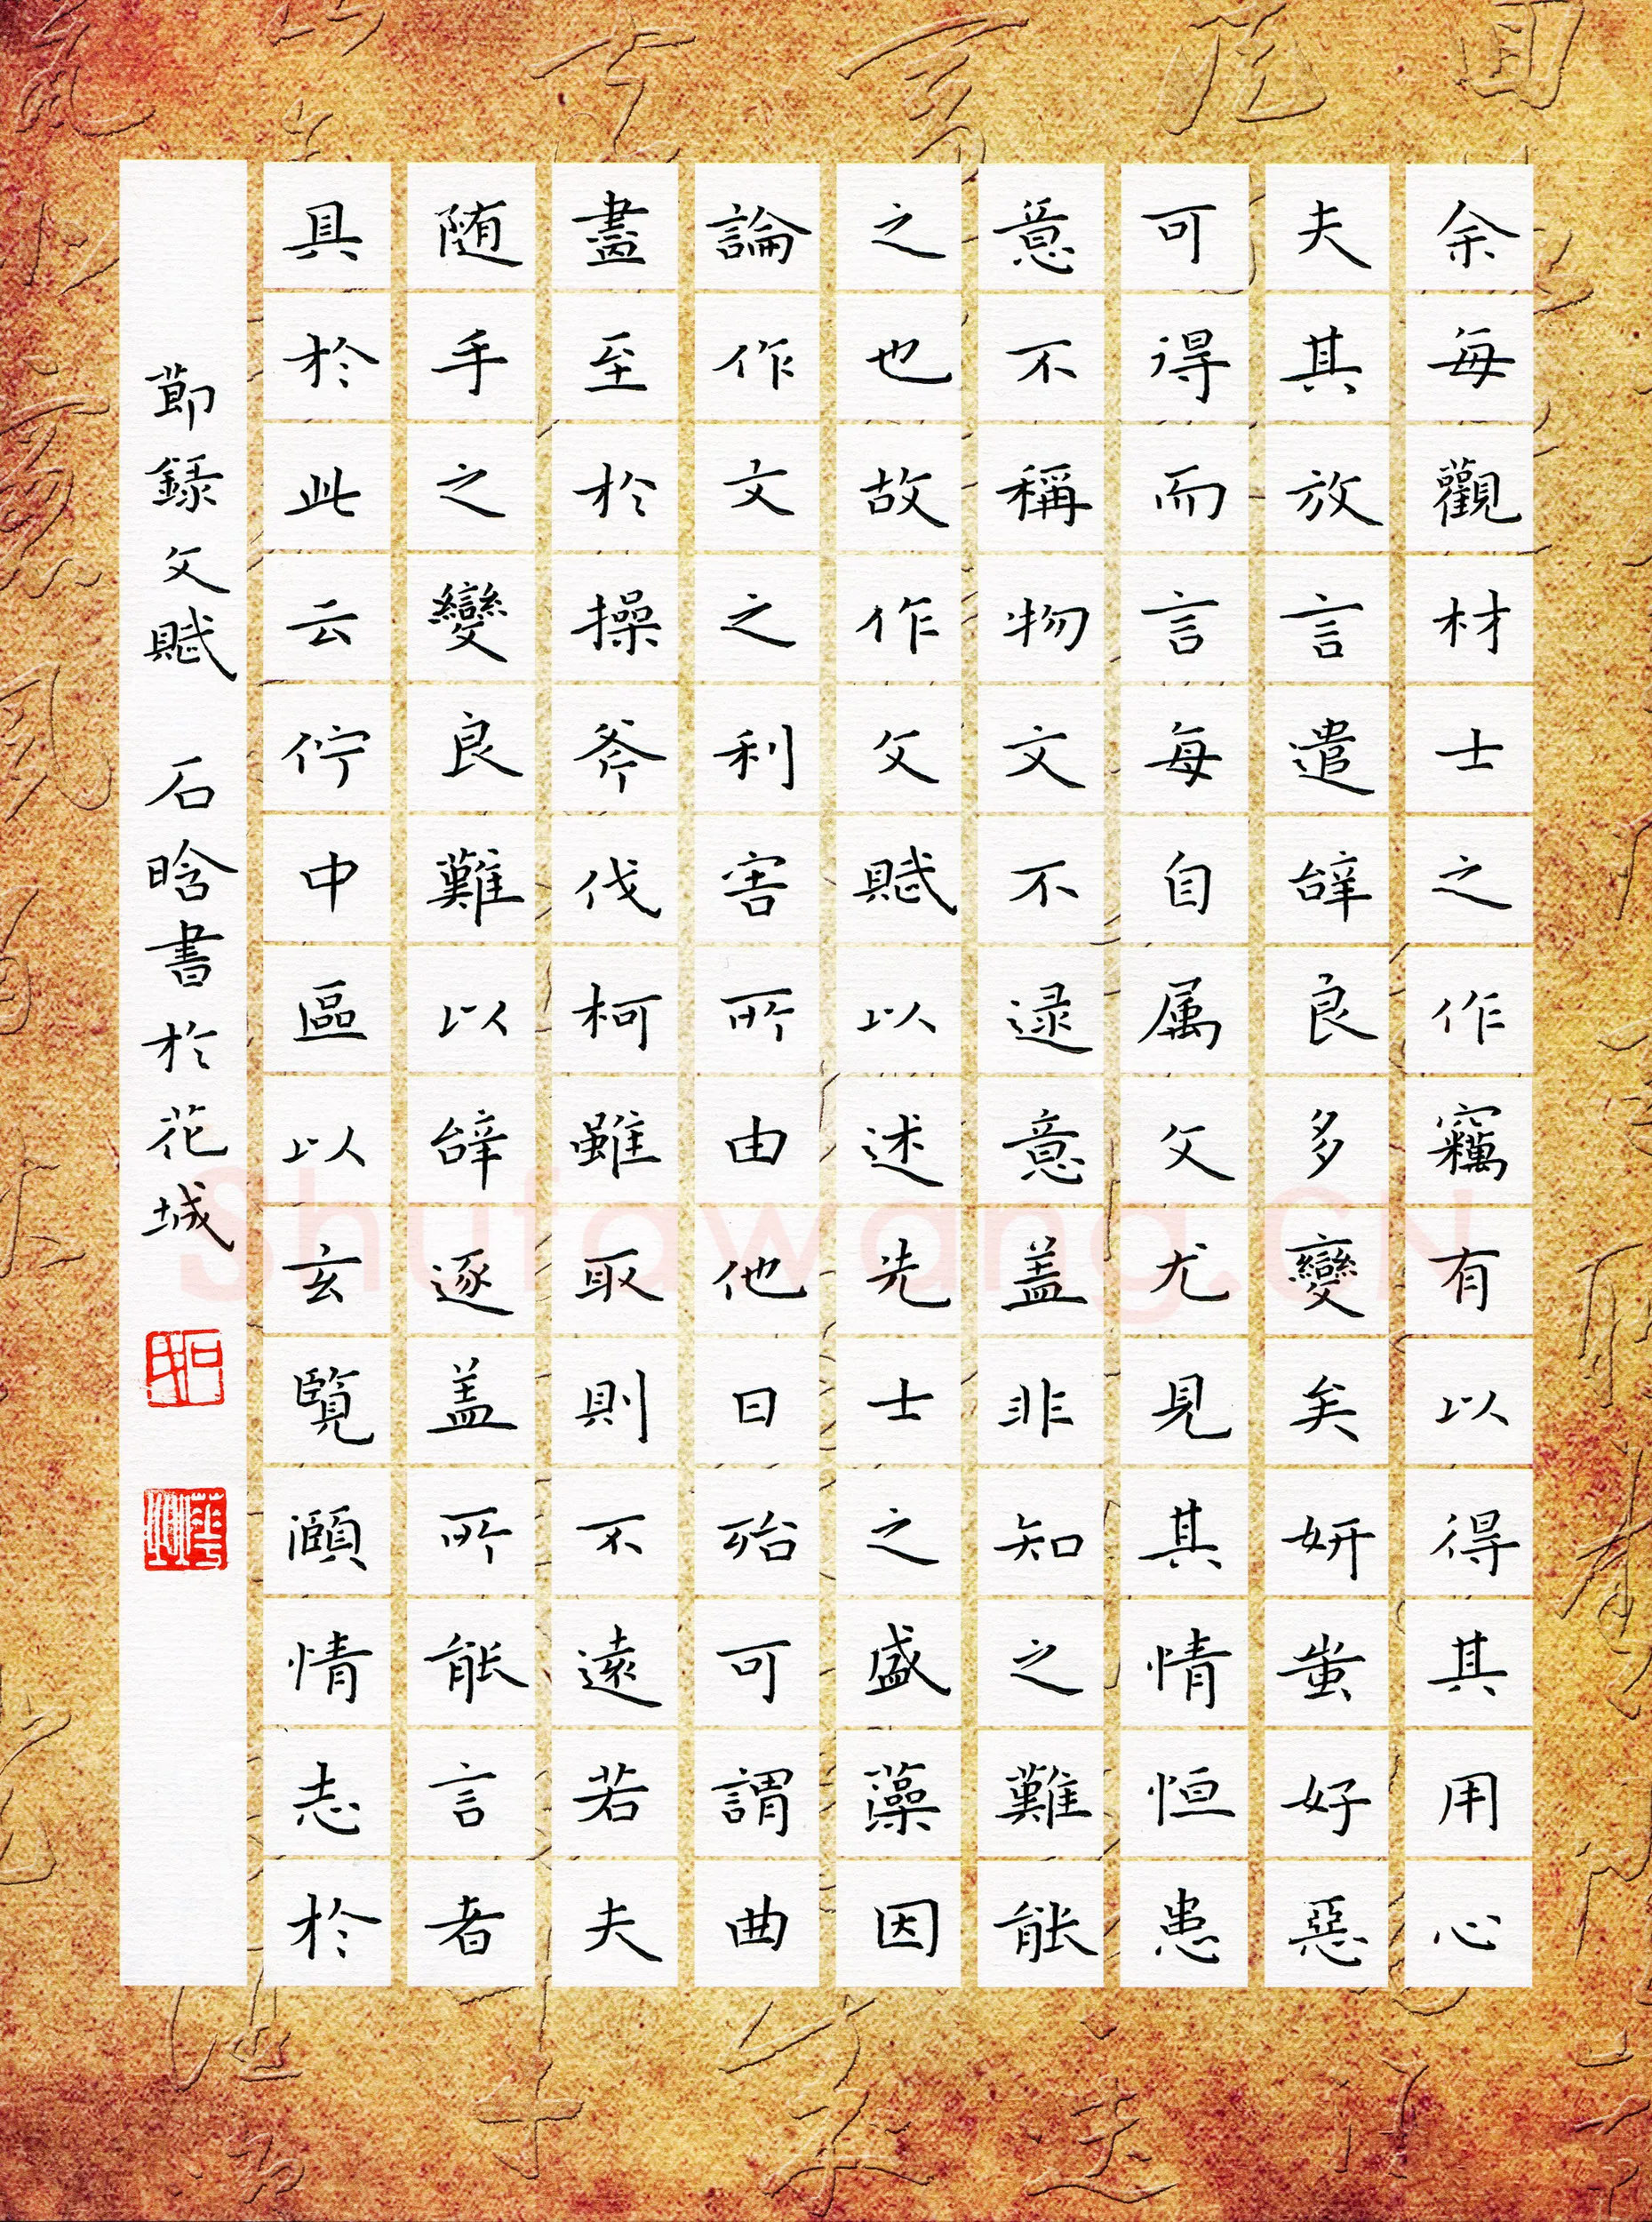 余每觀材士之作竊有以得其用心
夫其放言遣辝良多變矣妍蚩好惡
可得而言每自属文尤見其情恒患
意不稱物文不逮意盖非知之難能
之也故作文賦以述先士之盛藻因
論作文之利害所由他日殆可謂曲
盡至於操斧伐柯雖取則不遠若夫
随手之變良難以辝逐盖所能言者
具於此云佇中區以玄覽頤情志於
節錄文賦 石晗書於花城
Shufawang.CN